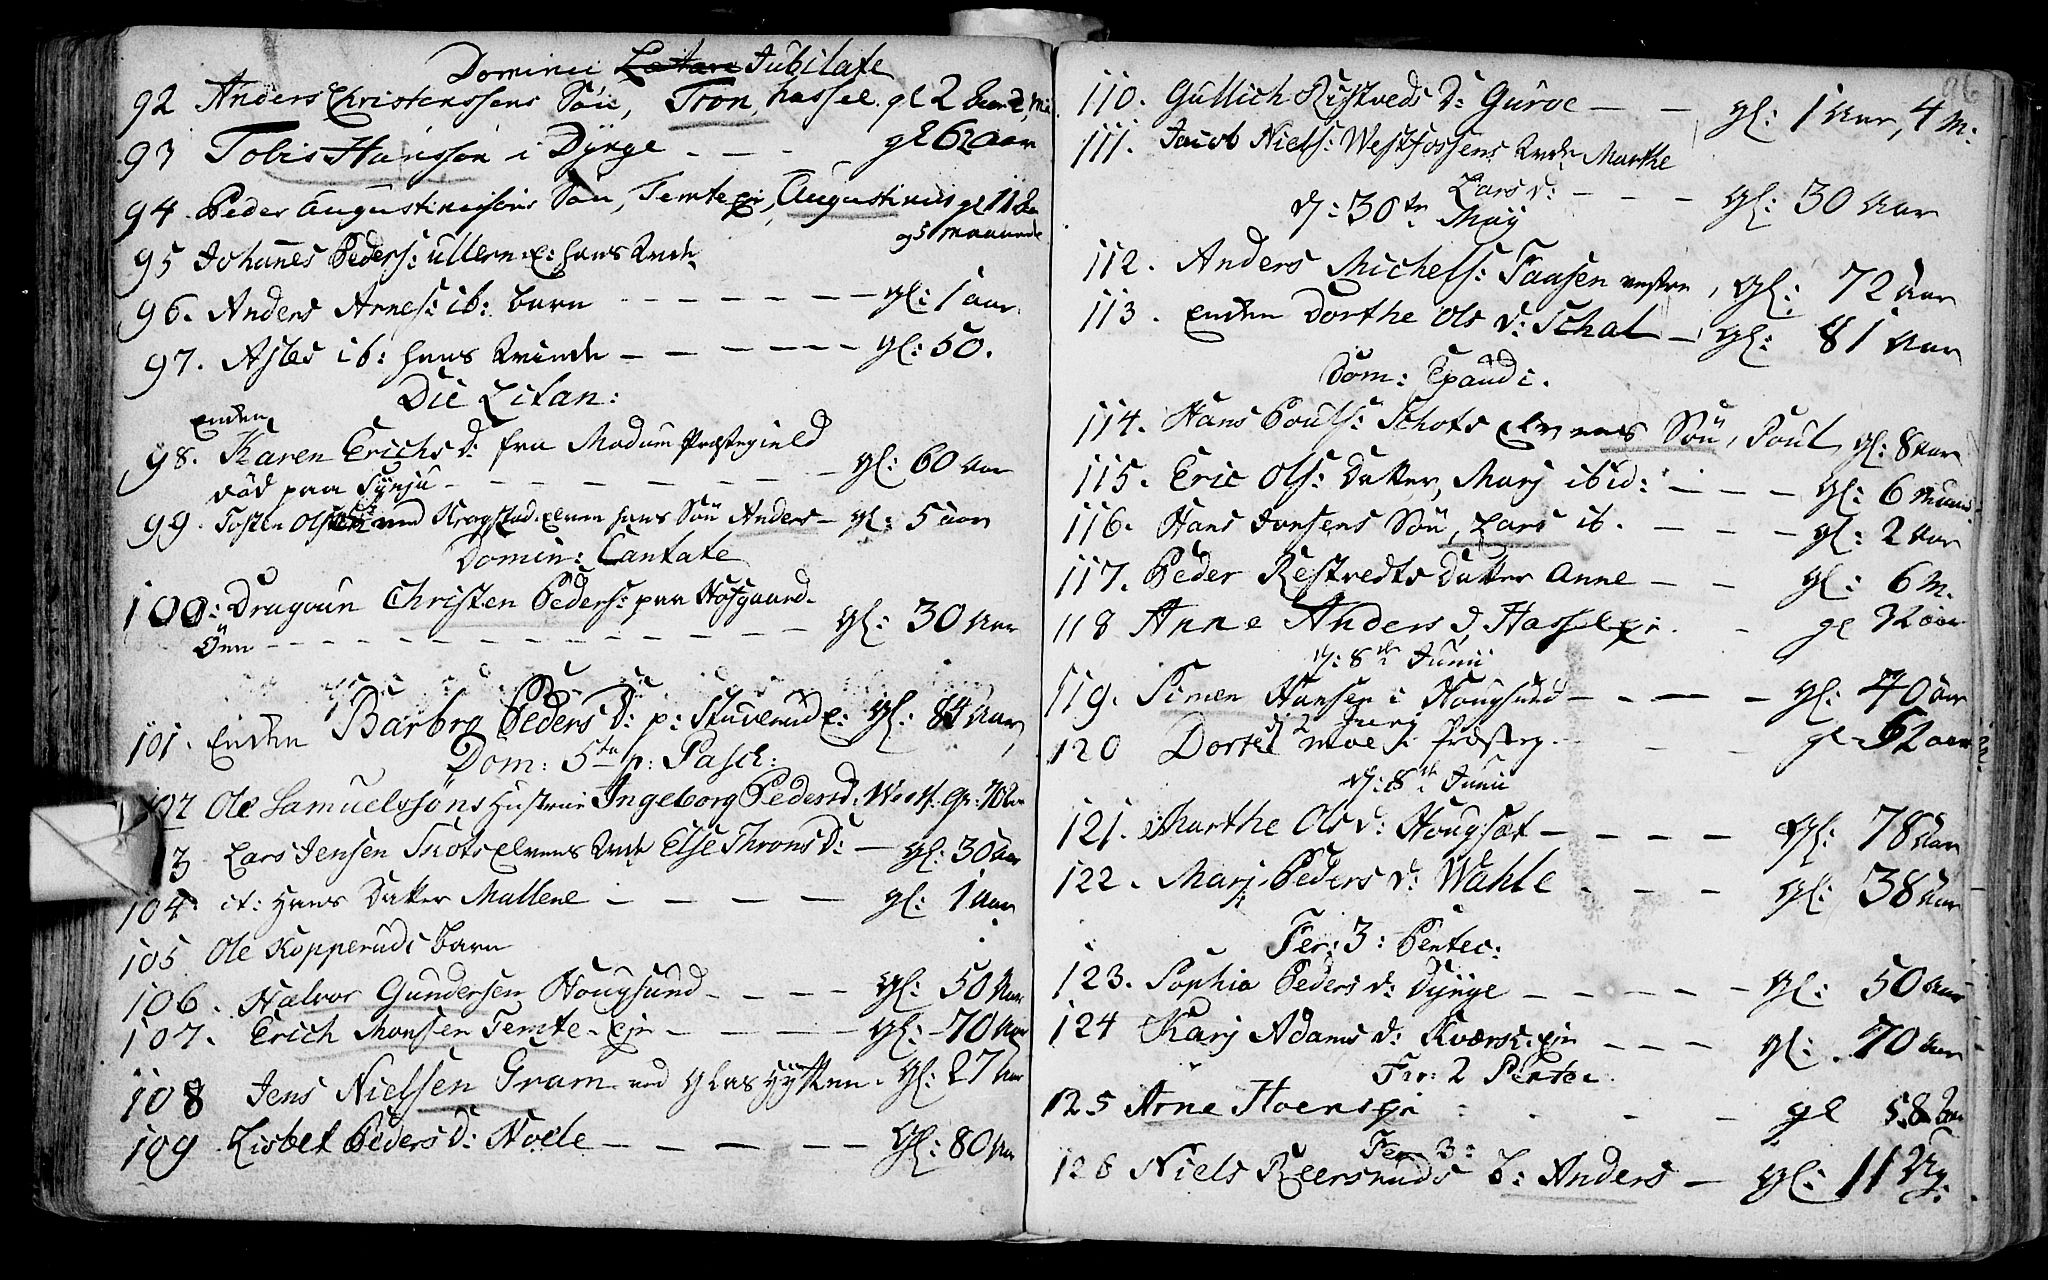 Dominic Lætare Jubilate
92 Anders Christenssens Søn, Tron, Hassel. gl 2 Aar
93 Tobis Hansson i Dynge - - - gl 62 aar
94. Peder Augustinusøns Søn, Temte Ejr, Augustinus gl 11 Aar
95 Johannes Peders: Ullern E: hans
96. Anders Arnes: ib: barn - - - - - - gl: 1 aar.
97. Asles ib: hans Qvinde - - - - - - gl: 50.
Die Litan:
Enken
98. Karen Erichs D: fra Modum Præstegield
død paa Dynju - - - - - - - gl: 60 Aar
99. Tosten Ols ved Krogstad Elven hans Søn Anders - gl: 5 aar
Domin: Cantate
100: Dragoun Christen Peders: paa Hofgaard.
Øen - - - - - - - - - - - gl: 30 Aar
101. Enken Barbro Peders D: p: Stuverud E: gl: 84 Aar,
Dom: 5te p: Pasch:
Ole Samuelssøns Hustrue Ingeborg Pedersd:
3 Lars Jensen Schots Elvens Qvide Else Throns D: - gl: 30 Aar
104 it: hans Datter Mallene - - - - gl: 1 Aar
105 Ole Kopperuds barn
106. Halvor Gundersen Hougsund - - - - gl: 50 Aar
107. Erich Monsen Temte - Ejr - - - - gl: 70 Aar
108 Jens Nielsen Gram ved Glas Hytten. gl: 27 Aar
109 Lisbet Peders D: Hoele - - - - - gl: 80 Aar
110. Gullich Ristveds D: Guroe - - gl: 1 Aar, 4 M:
111. Jacob Niels: Westfossens Qvide Marthe
Lars d: - - - gl: 30 Aar
d: 30te Maij
112. Anders Michels: Taasen vestre, gl: 72 Aar
113. Enken Dorthe Ols D: Schal - gl: 81 Aar
Dom: Exaudi.
114. Hans Pouls: Schots Elvens Søn, Poul gl: 8 Aar
115. Eric Ols: Datter, Marj ibid: - - - gl: 6
116. Hans Jonsens Søn, Lars ib. - - - gl: 2 Aar
117. Peder Restvedts Datter Anne - - gl: 6 M.
118 Anne Anders d, Hassel Ejr. - gl 32 aar
d: 8de Junii
119. Simen Hansen i Hougsund - - - - gl: 40 Aar
d 2 Junj
120 Dorte Moe i Præsteg. - - gl - 62 aar
d: 8de Junii
121. Marthe Ols d: Hougset - - - - gl: 78 Aar
122. Marj Peders d: Wahle - - - gl: 38 Aar
Fer: 3: Pentec:
123. Sophia Peders d: Dynge - - - - - gl: 50 Aar
124 Karj Adams d: Kværsk: Ejr - - - gl: 70 Aar
Fer: 2 Pentec
125 Arne Hoens Ejr - - - gl 58 Aar
Fer: 3:
126 Niels Reersruds b: Anders - gl: 11 Ug.